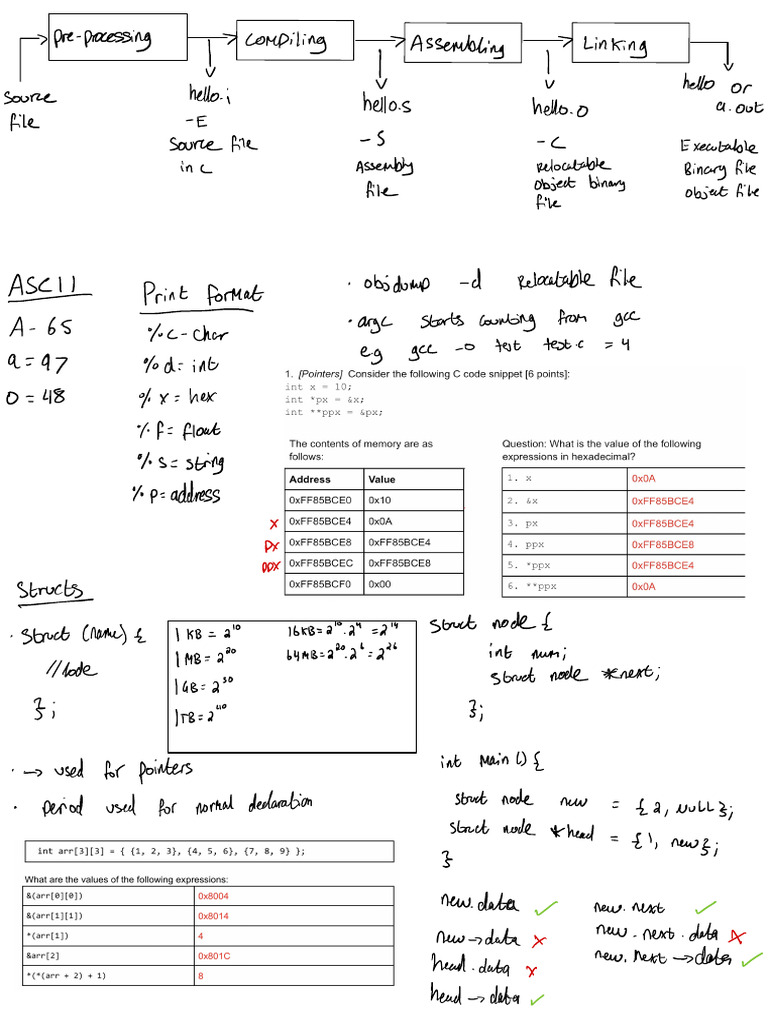 Pre-processing
Compiling
Assembling
Linking
Source
file
hello.i
-E
Source file
in C
hello.s
-S
Assembly
file
hello.o
-C
Relocatable
Object binary
file
hello or
a.out
Executable
Binary file
Object file
ASCII
A - 65
a = 97
0 = 48
Print format
%c - char
%d = int
%x = hex
%f = float
%s = string
%p = address
· objdump -d Relocatable file
· argc starts counting from gcc
e.g gcc -o test test.c = 4
1. [Pointers] Consider the following C code snippet [6 points]:
int x = 10;
int *px = &x;
int **ppx = &px;
The contents of memory are as
follows:
Address Value
0xFF85BCE0 0x10
x 0xFF85BCE4 0x0A
px 0xFF85BCE8 0xFF85BCE4
ppx 0xFF85BCEC 0xFF85BCE8
0xFF85BCF0 0x00
Question: What is the value of the following
expressions in hexadecimal?
1. x 0x0A
2. &x 0xFF85BCE4
3. px 0xFF85BCE4
4. ppx 0xFF85BCE8
5. *ppx 0xFF85BCE4
6. **ppx 0x0A
Structs
· Struct (name) {
//code
};
1 KB = 2^10
1 MB = 2^20
1 GB = 2^30
1 TB = 2^40
16KB = 2^10 · 2^4 = 2^14
64MB = 2^20 · 2^6 = 2^26
· -> used for pointers
· Period used for normal declaration
Struct node {
int num;
Struct node *next;
};
int main() {
Struct node new = {2, NULL};
Struct node *head = {1, new};
}
int arr[3][3] = { {1, 2, 3}, {4, 5, 6}, {7, 8, 9} };
What are the values of the following expressions:
&(arr[0][0]) 0x8004
&(arr[1][1]) 0x8014
*(arr[1]) 4
&arr[2] 0x801C
*(*(arr + 2) + 1) 8
new.data ✓
new->data x
head.data x
head->data ✓
new.next ✓
new.next.data x
new.next->data ✓